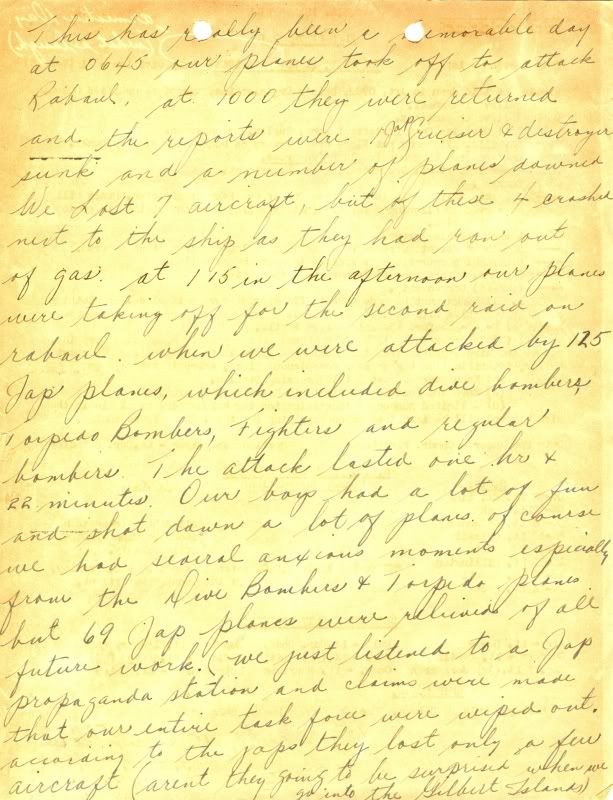 This has really been a memorable day
at 0645 our planes took off to attack
Rabaul. at 1000 they were returned
and the reports were 1 Jap Cruiser & destroyer
sunk and a number of planes downed
We Lost 7 aircraft, but of these 4 crashed
next to the ship as they had ran out
of gas. at 115 in the afternoon our planes
were taking off for the second raid on
rabaul. when we were attacked by 125
Jap planes, which included dive bombers,
Torpedo Bombers, Fighters and regular
bombers. The attack lasted one hr &
22 minutes. Our boys had a lot of fun
and shot down a lot of planes. of course
we had several anxious moments especially
from the Dive Bombers & Torpedo planes
but 69 Jap planes were relieved of all
future work. (we just listened to a Jap
propaganda station and claims were made
that our entire task force were wiped out.
according to the japs they lost only a few
aircraft (arent they going to be surprised when we
go into the Gilbert Islands)